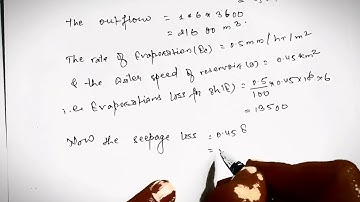 The outflow = 1.6 x 3600
= 216 00 m³.
The rate of Evaporation (Er) = 0.5 mm / hr / m²
& the Water speed of reservoir (a) = 0.45 km²
i.e Evaporations loss for 6h (E) = 0.5/100 x 0.45 x 10⁶ x 6
= 13500
Now the seepage loss = 0.45 E
=